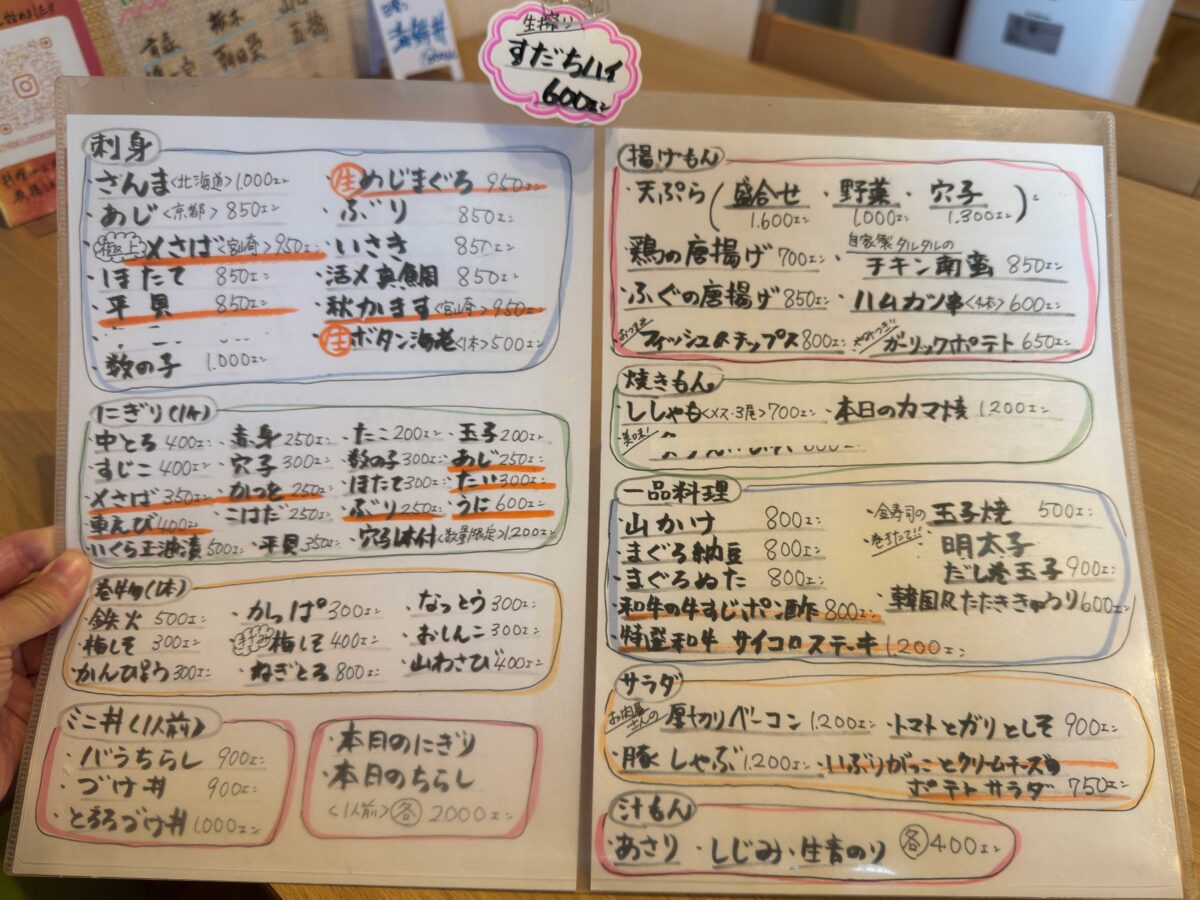 生搾り
すだちハイ
600エン
刺身
・さんま<北海道>1,000エン
・あじ<京都>850エン
・極上 〆さば<宮崎>950エン
・ほたて 850エン
・平貝 850エン
・数の子 1,000エン
・生めじまぐろ 950エン
・ぶり 850エン
・いさき 850エン
・活〆真鯛 850エン
・秋かます<宮崎>950エン
・生ボタン海老<1本>500エン
にぎり(1ケ)
中とろ400エン ・赤身250エン ・たこ200エン ・玉子200エン
すじこ400エン ・穴子300エン ・数の子300エン ・あじ250エン
〆さば350エン ・かつを250エン ・ほたて300エン ・たい300エン
車えび400エン ・こはだ250エン ・ぶり250エン ・うに600エン
いくら正油漬500エン ・平貝350エン ・穴子1本付<数量限定>1,200エン
巻物(1本)
・鉄火500エン ・かっぱ300エン ・なっとう300エン
・梅しそ300エン 梅しそ400エン ・おしんこ300エン
・かんぴょう300エン ・ねぎとろ800エン ・山わさび400エン
ミニ丼(1人前)
・バラちらし 900エン
・づけ丼 900エン
・とろろづけ丼 1,000エン
・本日のにぎり
・本日のちらし
<1人前>各2000エン
揚げもん
・天ぷら(盛合せ・野菜・穴子)
1.600エン 1,000エン 1.300エン
・鶏の唐揚げ700エン ・自家製タルタルの
チキン南蛮850エン
・ふぐの唐揚げ850エン ・ハムカツ串<4本>600エン
おつまみ フィッシュ&チップス800エン ・ガーリックポテト650エン
焼きもん
・ししゃも<メス・3尾>700エン ・本日のカマ焼1200エン
美味!
一品料理
・山かけ 800エン
・まぐろ納豆 800エン
・まぐろぬた 800エン
・和牛の牛すじポン酢800エン
・特選和牛 サイコロステーキ1,200エン
・金寿司の玉子焼 500エン
・巻きたて!! 明太子
だし巻玉子900エン
・韓国風たたききゅうり600エン
サラダ
・お肉屋さんの厚切りベーコン1.200エン ・トマトとガリとしそ900エン
・豚しゃぶ1.200エン ・いぶりがっことクリームチーズの
ポテトサラダ 750エン
汁もん
・あさり ・しじみ ・生青のり 各400エン